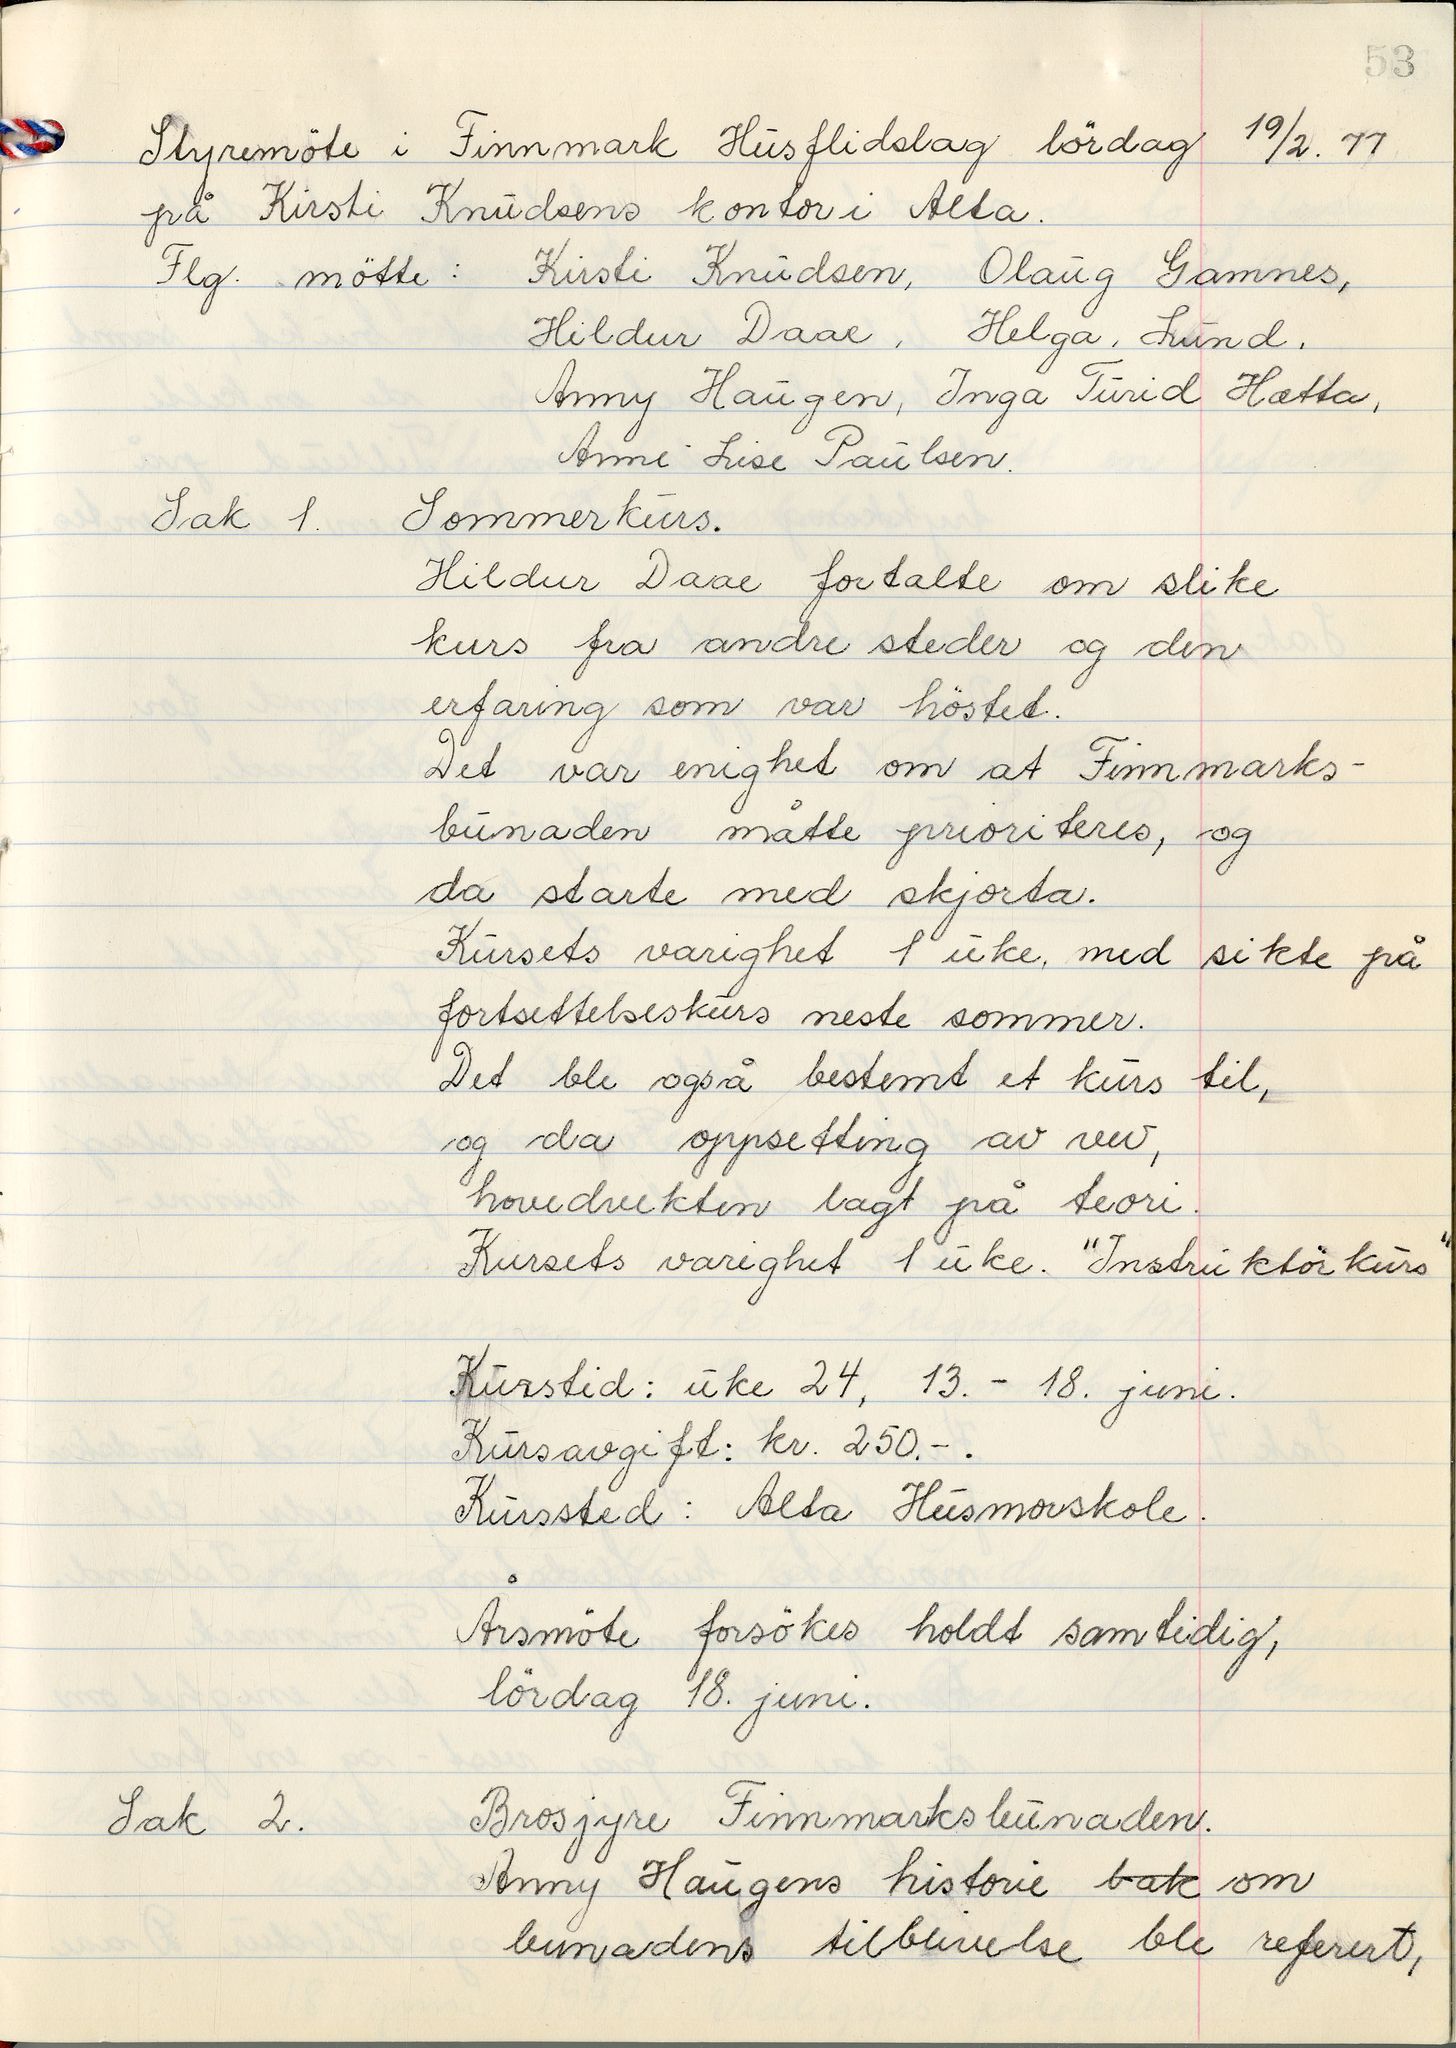 53
Styremöte i Finnmark Husflidslag lördag 19/2. 77
på Kirsti Knudsens kontor i Alta.
Flg. mötte: Kirsti Knudsen, Olaug Gamnes,
Hildur Daae, Helga, Lund.
Anny Haugen, Inga Turid Hætta,
Anne Lise Paulsen.
Sak 1. Sommerkurs.
Hildur Daae fortalte om slike
kurs fra andre steder og den
erfaring som var höstet.
Det var enighet om at Finnmarks-
bunaden måtte prioriteres, og
da starte med skjorta.
Kursets varighet 1 uke, med sikte på
fortsettelseskurs neste sommer.
Det ble også bestemt et kurs til,
og da oppsetting av vev,
hovedvekten lagt på teori.
Kursets varighet 1 uke. "Instruktörkurs"
Kurstid: uke 24, 13. - 18. juni.
Kursavgift: kr. 250.-.
Kurssted: Alta Husmorskole.
Årsmöte forsökes holdt samtidig,
lördag 18. juni.
Sak 2. Brosjyre Finnmarksbunaden.
Anny Haugens historie bak om
bunadens tilblivelse ble referert,